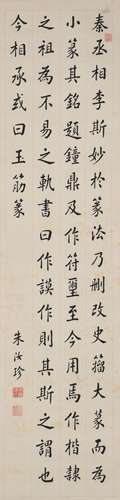 秦丞相李斯妙於篆法乃刪改史籀大篆而為
小篆其銘題鐘鼎及作符璽至今用焉作楷隸
之祖為不易之軌書曰作謨作則其斯之謂也
今相承或曰玉筋篆
朱汝珍